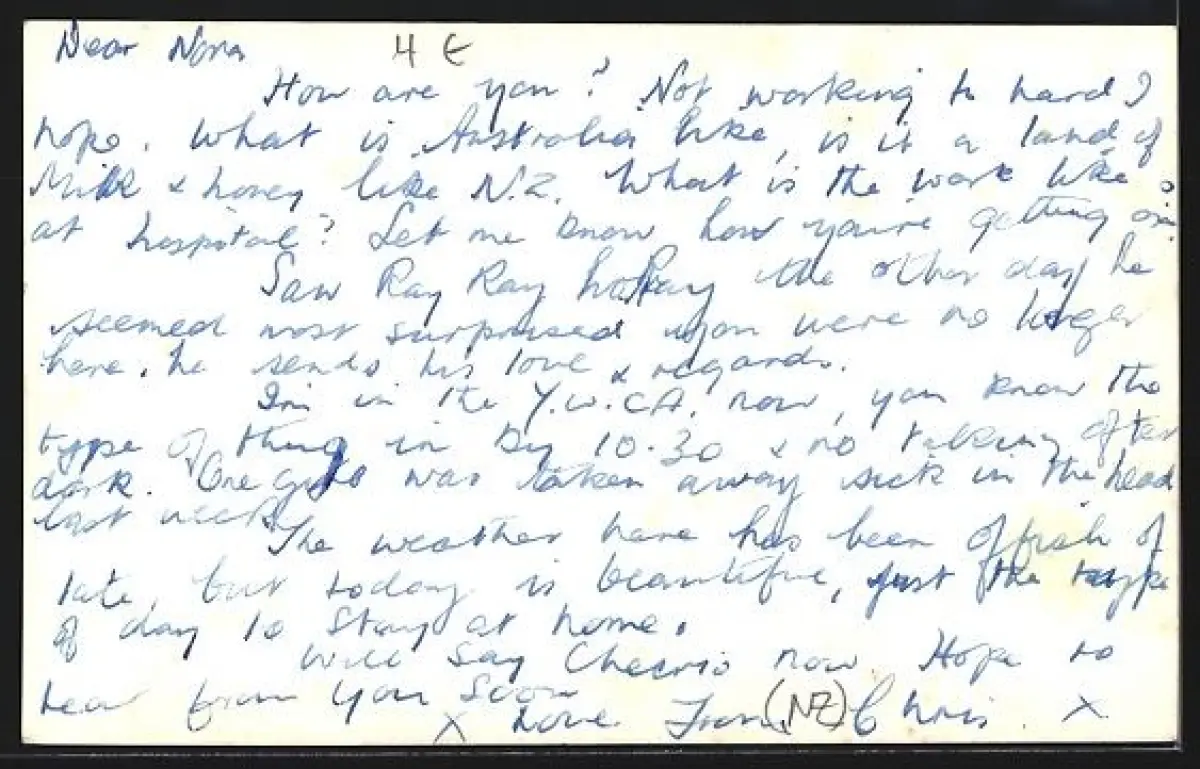 Dear Nora 4 €
How are you? Not working to hard I
hope. What is Australia like, is it a land of
Milk & honey like N.Z. What is the work like
at hospital? Let me know how you're getting on
Saw Ray Ray the other day he
seemed most surprised you were no longer
here, he sends his love & regards.
I'm in the Y.W.CA. now, you know the
type of thing in by 10.30 & no talking after
dark. One girl was taken away sick in the head
last week.
The weather here has been of
late, but today is beautiful, just the type
of day to stay at home.
Will say Cheerio now. Hope to
hear from you soon
X Love From (NZ) Chris. X